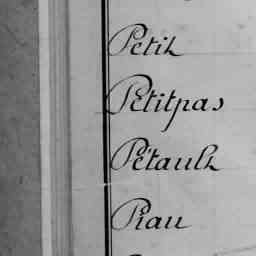 Petit
Petitpas
Pétault
Piau